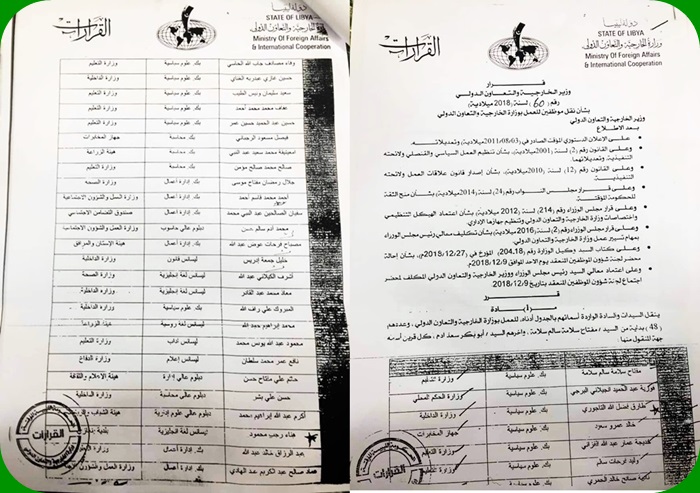 دولة ليبيا
STATE OF LIBYA
وزارة الخارجية والتعاون الدولي
Ministry Of Foreign Affairs
& International Cooperation
القرارات
قرار
وزير الخارجية والتعاون الدولي
رقم (60) لسنة 2018 ميلادية)
بشأن نقل موظفين للعمل بوزارة الخارجية والتعاون الدولي
وزير الخارجية والتعاون الدولي
بعد الاطلاع
على الاعلان الدستوري المؤقت الصادر في 2011/08/03م وتعديلاته.
وعلى القانون رقم (2) لسنة 2001 ميلادية، بشأن تنظيم العمل السياسي والقنصلي ولائحته
التنفيذية وتعديلاتهما.
وعلى القانون رقم (12) لسنة 2010 ميلادية، بشأن إصدار قانون علاقات العمل ولائحته
التنفيذية
وعلى قرار مجلس النواب رقم (24) لسنة 2014 ميلادية) بشأن منح الثقة
للحكومة المؤقتة
وعلى قرار مجلس الوزراء رقم (214) لسنة 2012 ميلادية) بشأن اعتماد الهيكل التنظيمي
واختصاصات وزارة الخارجية والتعاون الدولي وتنظيم جهازها الإداري.
وعلى قرار مجلس الوزراء رقم (2) لسنة 2016 ميلادية) بشأن تكليف معالي رئيس مجلس الوزراء
بمهام تسيير عمل وزارة الخارجية والتعاون الدولي.
وعلى كتاب السيد وكيل الوزارة رقم (204.18) المؤرخ في 2018/12/27م، بشأن إحالة
محضر لجنة شؤون الموظفين المنعقد يوم الاحد الموافق 2018/12/9م
وعلى اعتماد معالي السيد رئيس مجلس الوزراء ووزير الخارجية والتعاون الدولي المكلف لمحضر
اجتماع لجنة شؤون الموظفين المنعقد بتاريخ 2018/12/9م
قرر
مادة
ينقل السيدات والسادة الواردة أسمائهم بالجدول أدناه، للعمل بوزارة الخارجية والتعاون الدولي، وعددهم
(48) بداية من السيد / مفتاح سلامة سالم سلامة، وآخرهم السيد / أبوبكر سعد آدم، كل قرين أسمه
جهة المنقول منها
مفتاح سلامة سالم سلامة بك. علوم سياسية وزارة التعليم
فوزية عبد الحميد الجيلاني بك. علوم سياسية وزارة الحكم المحلي
طارق فضل الله بك. علوم سياسية وزارة الداخلية
خالد عمرو سعد بك. علوم سياسية جهاز المخابرات
خديجة عمار عبد الله بك. علوم سياسية وزارة
وليد فرحات سالم بك. علوم سياسية وزارة التعليم
صالح خالد بك. علوم سياسية وزارة التعليم
القرارات
دولة ليبيا
STATE OF LIBYA
وزارة الخارجية والتعاون الدولي
Ministry Of Foreign Affairs
& International Cooperation
القرارات
وفاء مصادف جاب الله الحاسي بك. علوم سياسية وزارة التعليم
حسين غازي عبدربه بك. علوم سياسية وزارة الداخلية
سعيد سليمان ونيس الطيب بك. علوم سياسية وزارة التعليم
عفاف محمد محمد أحمد بك. علوم سياسية وزارة التعليم
حسين عبد الحميد حسين عمر بك. علوم سياسية وزارة التعليم
فيصل مسعود بك. محاسبة جهاز المخابرات
محمد سعيد عبد النبي بك. محاسبة هيئة الزراعة
صالح محمد صالح مؤمن بك. محاسبة وزارة التعليم
جلال رمضان مفتاح موسى بك. إدارة أعمال وزارة الصحة
أحمد محمد قاسم أحمد بك. إدارة أعمال وزارة العمل والشؤون الاجتماعية
سفيان الصالحين عبد النبي محمد بك. إدارة أعمال صندوق التضامن الاجتماعي
محمد آدم سالم حسن دبلوم عالي حاسوب وزارة العمل والشؤون الاجتماعية
مصباح فرحات عوض عبد الله بك. إدارة أعمال هيئة الإسكان والمرافق
خليل جمعة إدريس ليسانس قانون وزارة الداخلية
أشرف الكيلاني عبد الله ليسانس لغة إنجليزية وزارة الصحة
معاذ محمد عبد القادر ليسانس لغة إنجليزية وزارة الداخلية
المبروك علي رافع عبد الله بك. علوم سياسية وزارة الداخلية
محمد إبراهيم حمد عبد الله ليسانس لغة روسية
محمود عبد الله يونس محمد ليسانس آداب وزارة التعليم
دافع عمر محمد سلطان ليسانس إعلام وزارة الدفاع
حاتم علي مفتاح حسن دبلوم عالي إدارة هيئة الإعلام والثقافة
حسن علي بشر دبلوم عالي محاسبة وزارة الداخلية
أكرم عبد الله إبراهيم أحمد دبلوم عالي علوم إدارية هيئة الشباب والرياضة
هناء رجب محمود ليسانس لغة انجليزية
عبد الرزاق خالد عبد الله بك. إدارة أعمال وزارة الداخلية
عماد صالح عبد الكريم عبد الهادي بك. إدارة أعمال وزارة العمل والشؤون
القرارات